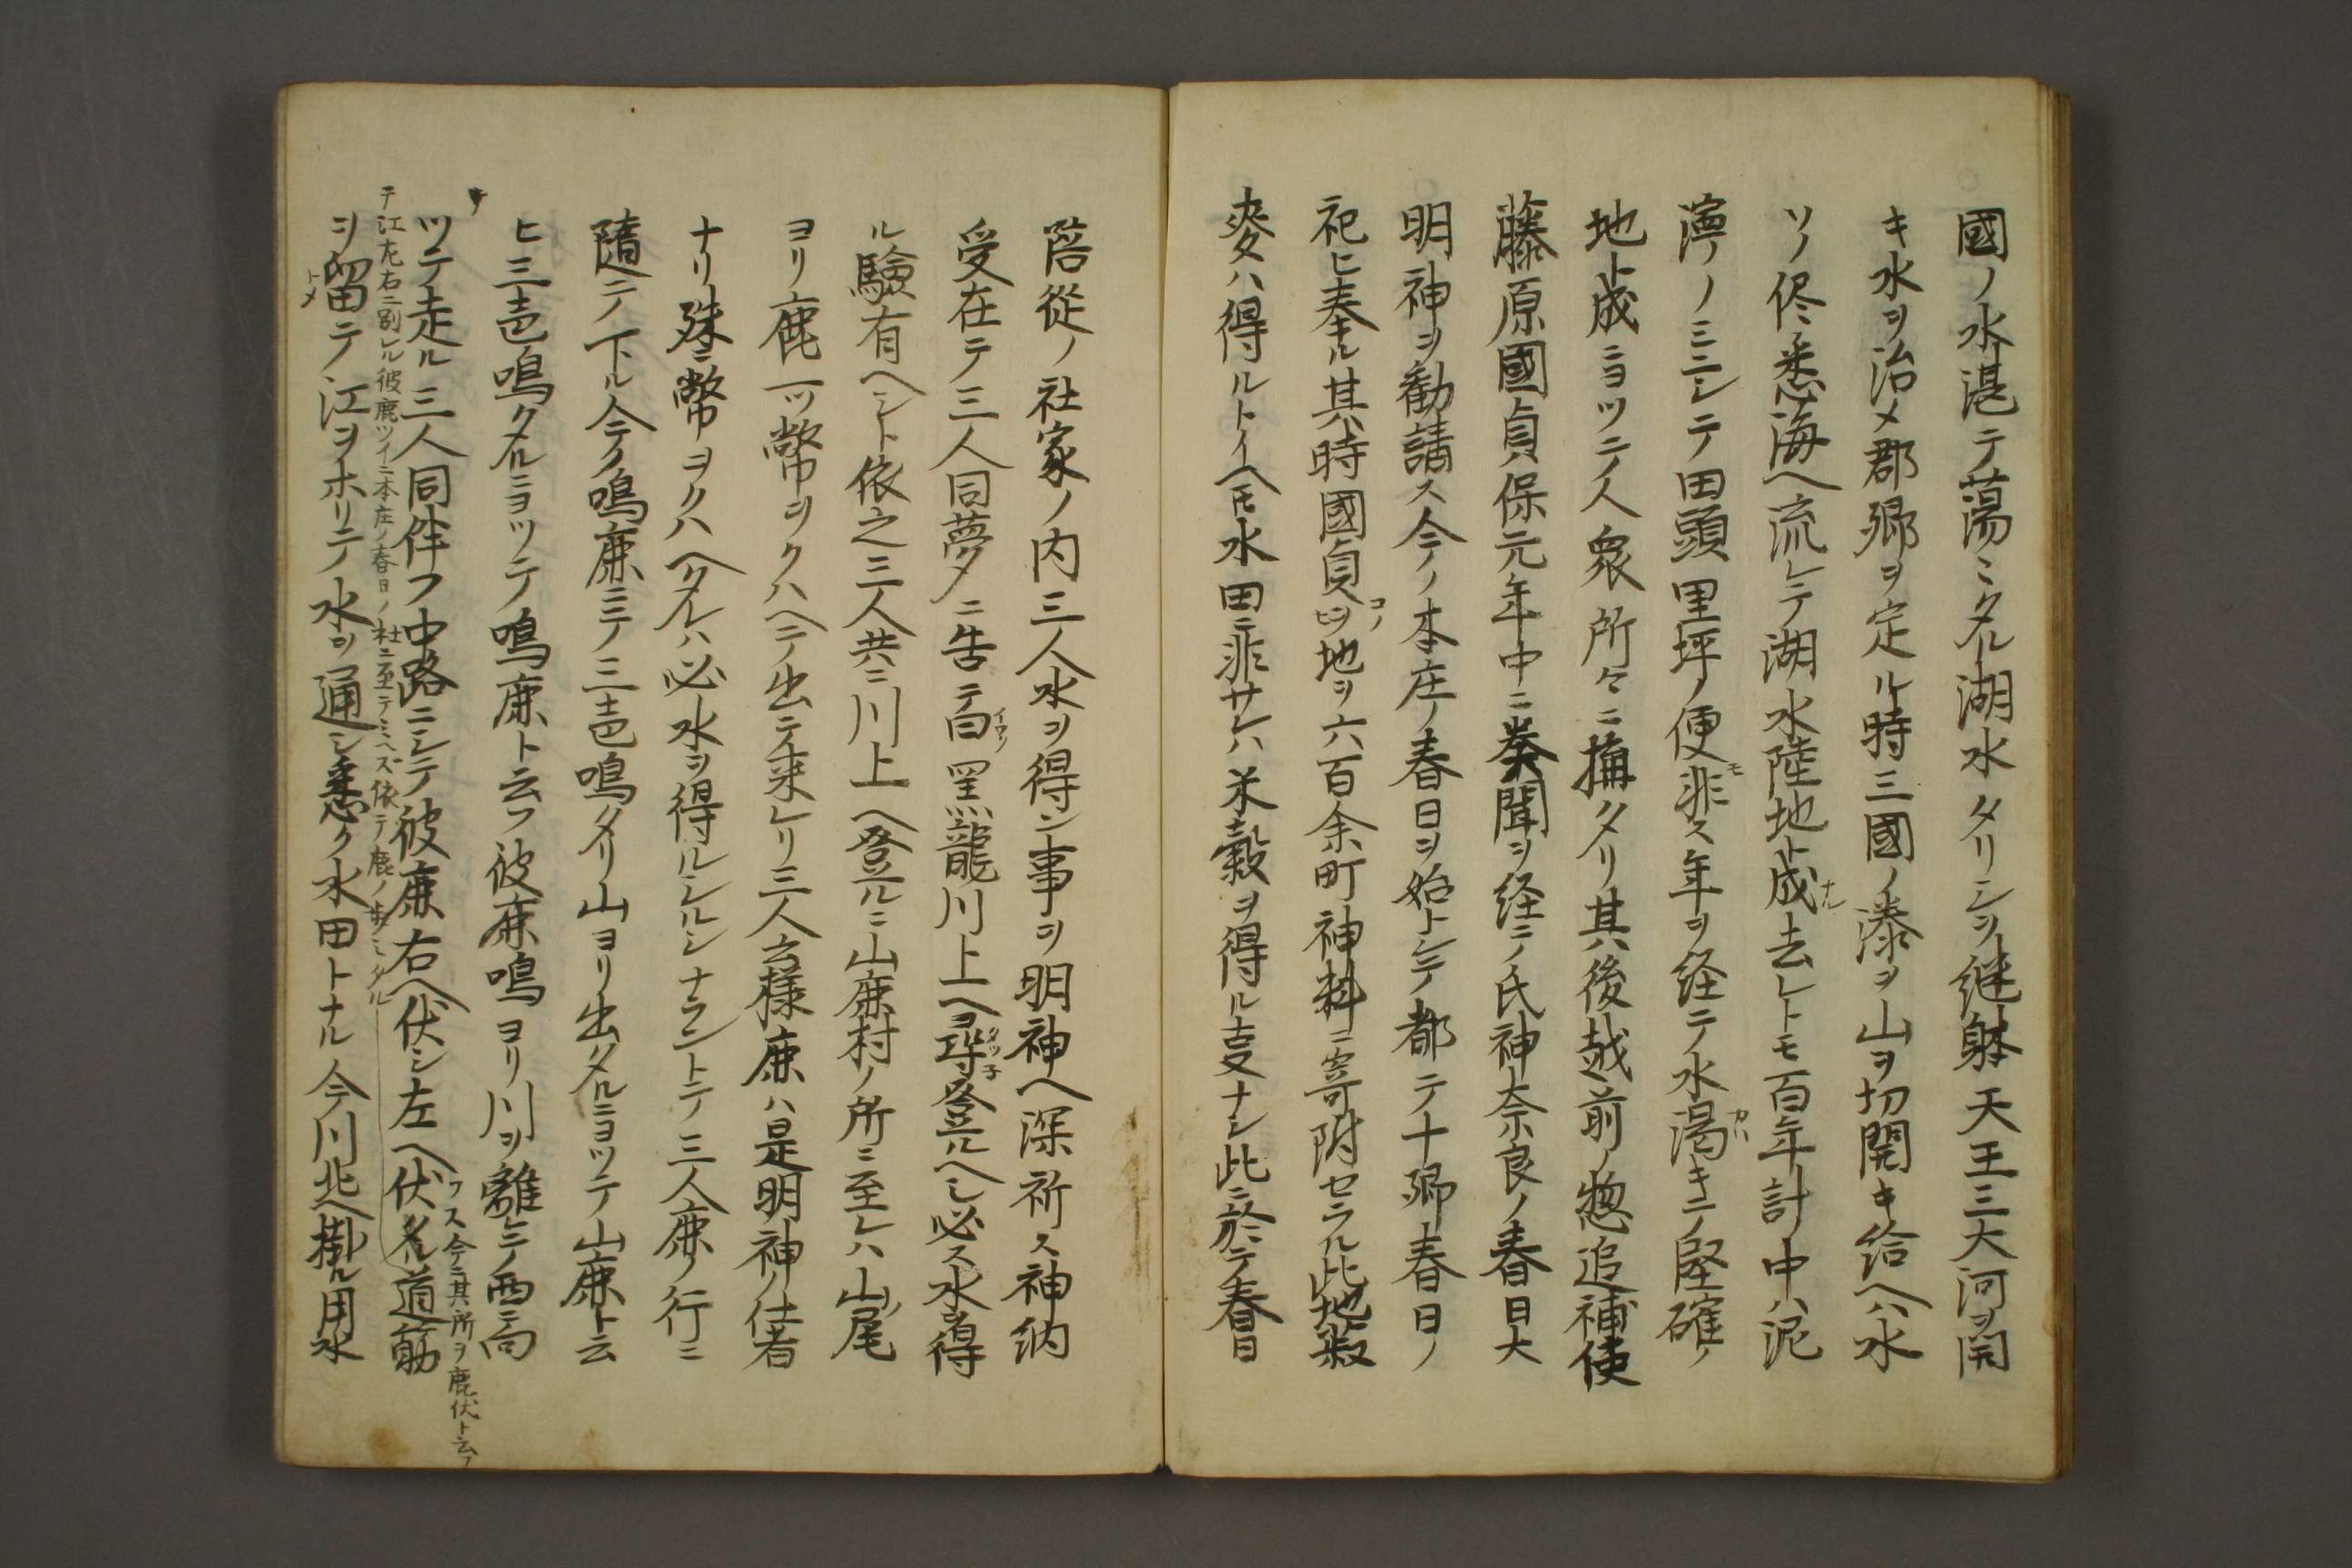 國ノ水湛テ蕩ミタル湖水タリシヲ継躰天王三大河ヲ開
キ水ヲ治メ郡郷ヲ定ル時三國ノ湊ヲ山ヲ切開キ給ヘハ水
ソノ侭悉海ヘ流レテ湖水陸地ト成去レトモ百年計ノ中ハ泥
ナル
濘ノミニシテ田頭里坪ノ便非ス年ヲ経テ水渇キテ堅確ノ
モ
カハ
地ト成ニヨツテ人衆所々ニ搆タリ其後越前ノ惣追補使
藤原國貞保元年中ニ奏聞ヲ経テ氏神奈良ノ春日大
明神ヲ勧請ス今ノ本庄ノ春日ヲ始トシテ都テ十郷春日ノ
祀ヒ奉ル其時國貞ノ地ヲ六百余町神料ニ寄附セラル此地叛
コノ
麥ハ得ルトイヘモ水田ニ非サレハ米穀ヲ得ル叓ナシ此ニ於テ春日
陪従ノ社家ノ内三人水ヲ得ン事ヲ明神ヘ深祈ス神納
受在テ三人同夢ニ告テ曰黒龍川上ヘ尋登ルヘシ必ス水ヲ得
イワク
タツ子
ル驗有ヘシト依之三人共ニ川上ヘ登ルニ山鹿村ノ所ニ至レハ山ノ尾
ヨリ鹿一ツ幣ヲクハヘテ出テ来レリ三人云様鹿ハ是明神ノ仕者
ナリ殊ニ幣ヲクハヘタルハ必水ヲ得ルシルシナラントテ三人鹿ノ行ニ
隨テ下ル今ノ鳴鹿ニテ三声鳴タリ山ヨリ出タルニヨツテ山鹿ト云
ヒ三声鳴タルニヨツテ鳴鹿ト云フ彼鹿鳴ヨリ川ヲ離レテ西ニ向
フス今ニ其所ヲ鹿伏ト云フ
ツテ走ル三人同伴フ中路ニシテ彼鹿右ヘ伏シ左ヘ伏タル道筋
テ江左右ニ別レル彼鹿ツイニ本庄ノ春日ノ社ニ至テミヘズ依テ鹿ノ歩ミタル
ヲ留テ江ヲホリテ水ヲ通シ悉ク水田トナル今川北ヘ掛ル用水
トメ